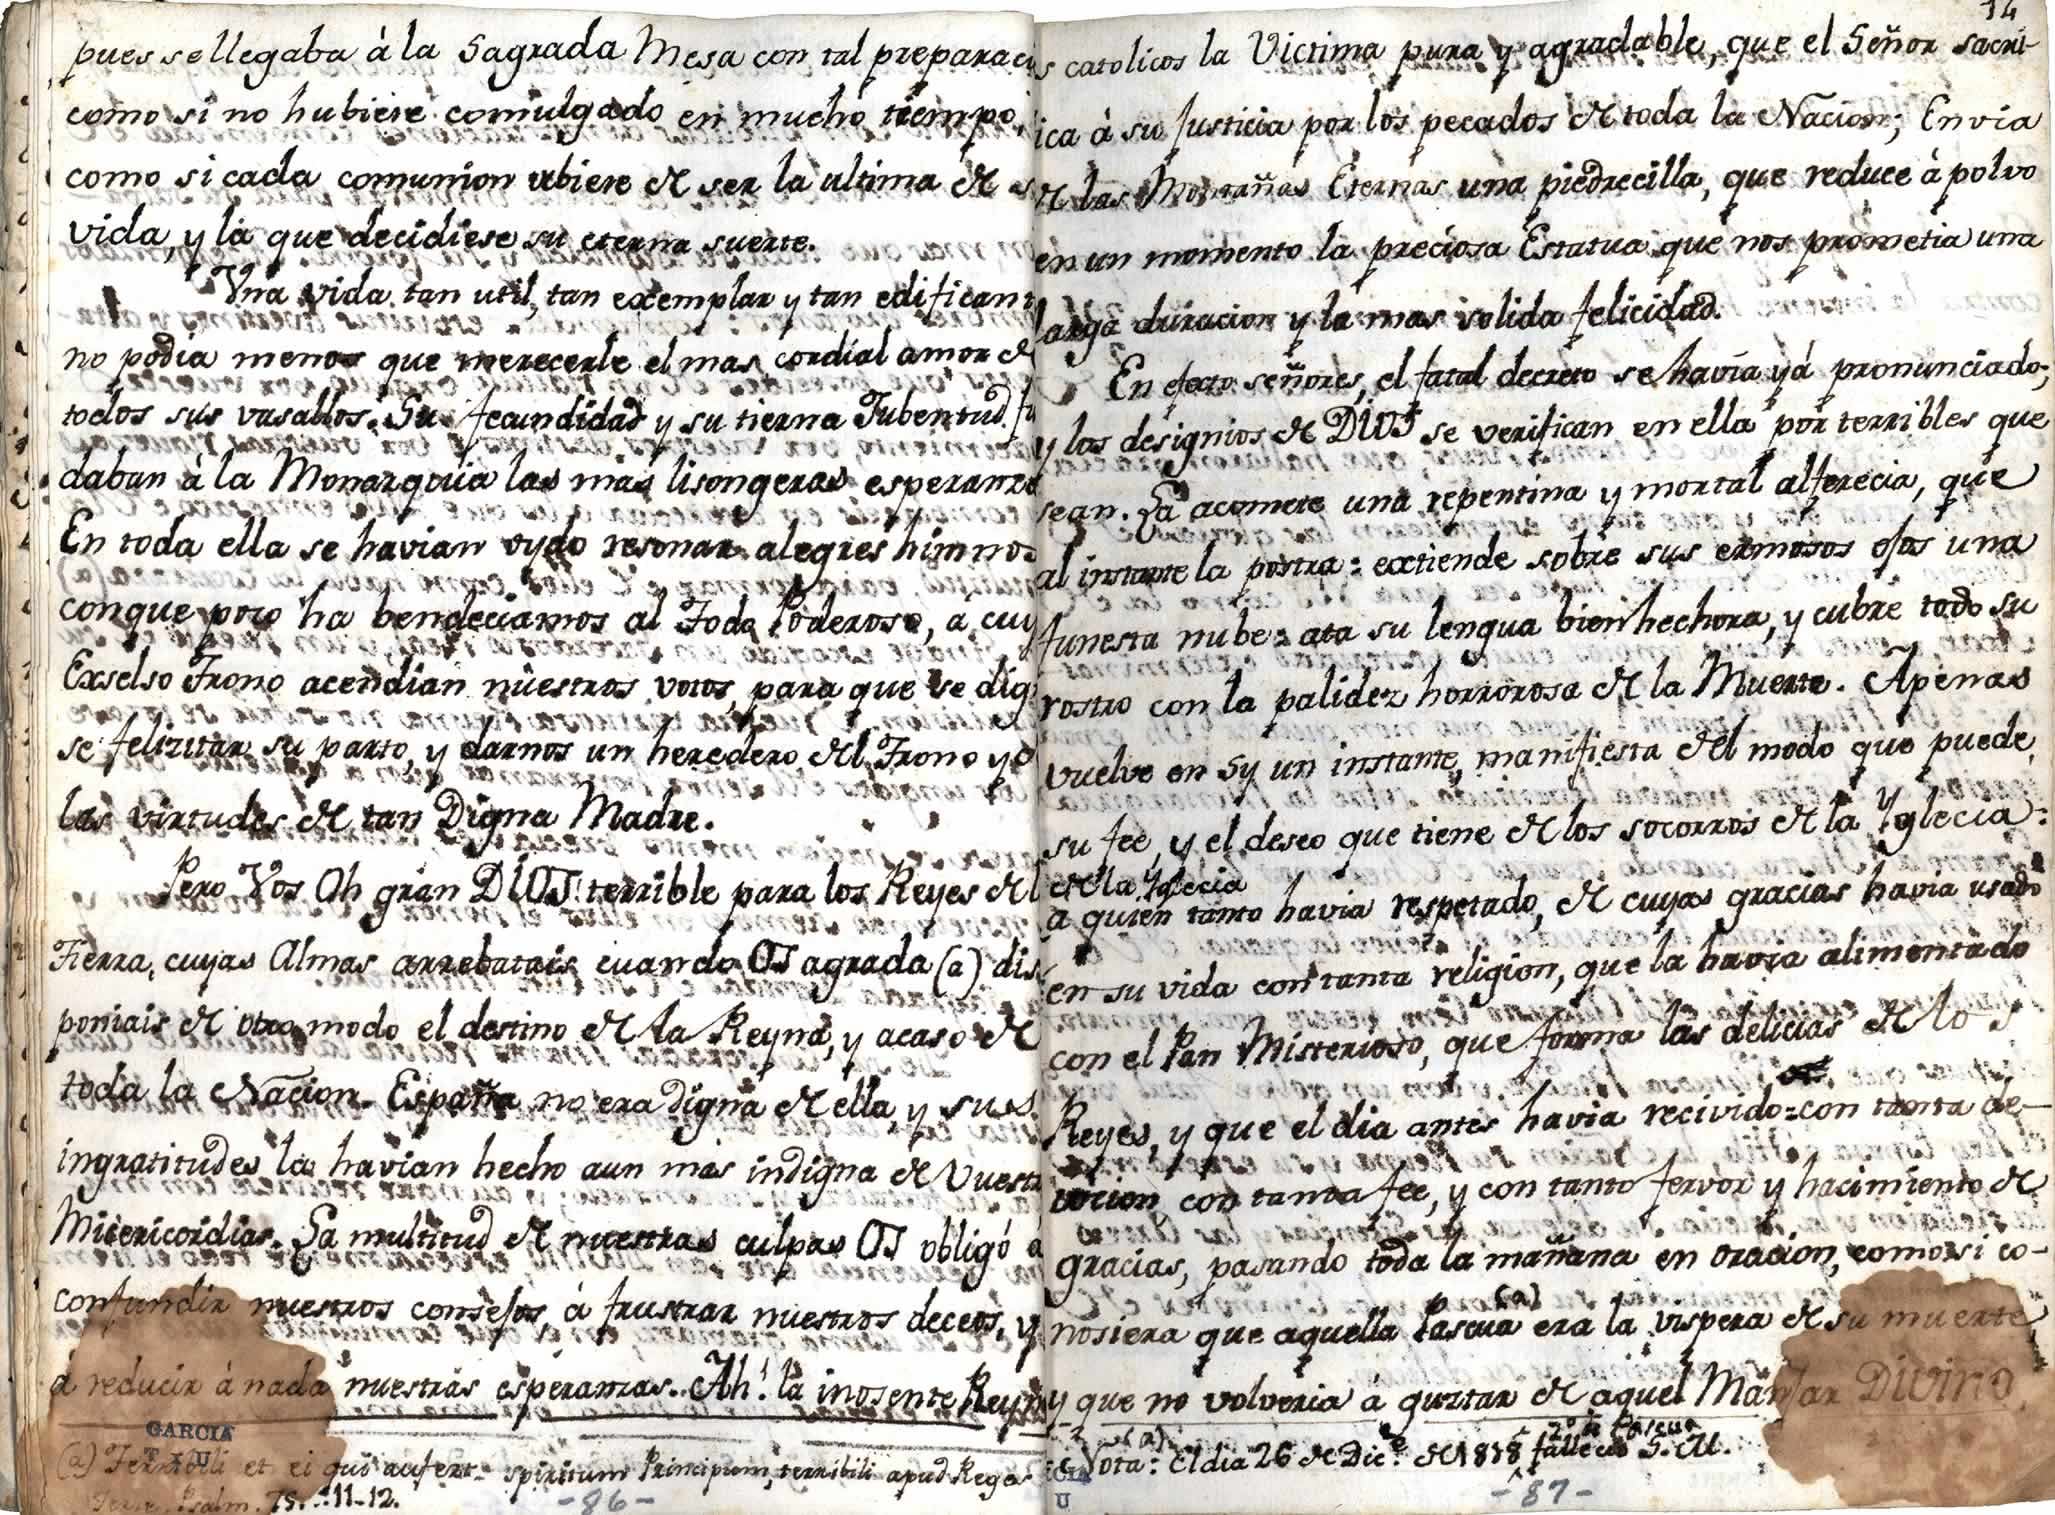 pues se llegaba à la Sagrada Mesa con tal preparaci
como si no hubiere comulgado en mucho tiempo,
como si cada comunion ubiere de ser la ultima de s
vida, y la que decidiese su eterna suerte.
Vna vida tan util, tan exemplar y tan edificant
no podia menos que merecerle el mas cordial amor de
todos sus vasallos. Su fecundidad y su tierna Jubentud fu
daban à la Monarquia las mas lisongeras esperanza
En toda ella se havian oydo resonar alegres himnos
conque poco ha bendeciamos al Todo Poderoso, á cuy
Exselso Trono acendian nuestros votos, para que se dig
se felizitar su parto, y darnos un heredero del Trono y d
las virtudes de tan Digna Madre.
Pero Vos Oh gran DIOS! terrible para los Reyes de l
Tierra, cuyas Almas arrebatais cuando OS agrada (a) dis
poniais de otro modo el destino de la Reyna, y acaso de
toda la Nacion. España no era digna de ella, y sus
ingratitudes la havian hecho aun mas indigna de Vuestr
Misericordias. La multitud de nuestras culpas OS obligó á
confundir nuestros consejos, á frustrar nuestros deceos, y
á reducir à nada nuestras esperanzas.. Ah! la inosente Reyn
(a) Terribili et ei qui aufert spiritum Principum, terribili apud Reges
Terre. Psalm. 75. 11-12.
GARCIA
T x U
-86-
14
s catolicos la Victima pura y agradable, que el Señor sacri-
ica à su Justicia por los pecados de toda la Nacion; Envia
de las Montañas Eternas una piedrecilla, que reduce à polvo
en un momento la preciosa Estatua que nos prometia una
larga duracion y la mas solida felicidad.
En efecto señores, el fatal decreto se havia yá pronunciado;
y los designios de DIOS se verifican en ella por terribles que
sean. La acomete una repentina y mortal alferecia, que
al instante la postra: extiende sobre sus ermosos ojos una
funesta nube: ata su lengua bienhechora, y cubre todo su
rostro con la palidez horrorosa de la Muerte. Apenas
vuelve en sy un instante, manifiesta del modo que puede,
su fee, y el deseo que tiene de los socorros de la Yglecia:
de la Yglecia
a quien tanto havia respetado, de cuyas gracias havia usado
en su vida con tanta religion, que la havia alimentado
con el Pan Misterioso, que forma las delicias de los
Reyes, y que el dia antes havia recivido=con tanta de-
vocion, con tanta fee, y con tanto fervor y hacimiento de
gracias, pasando toda la mañana en oracion, como si co-
nosiera que aquella Pascua (a) era la vispera de su muerte
y que no volveria á guztar de aquel Manjar DIVINO.
(a) Nota: El dia 26 de Dice. de 1818 2º de Pascua fallecio S. M.
CIA
U
-87-